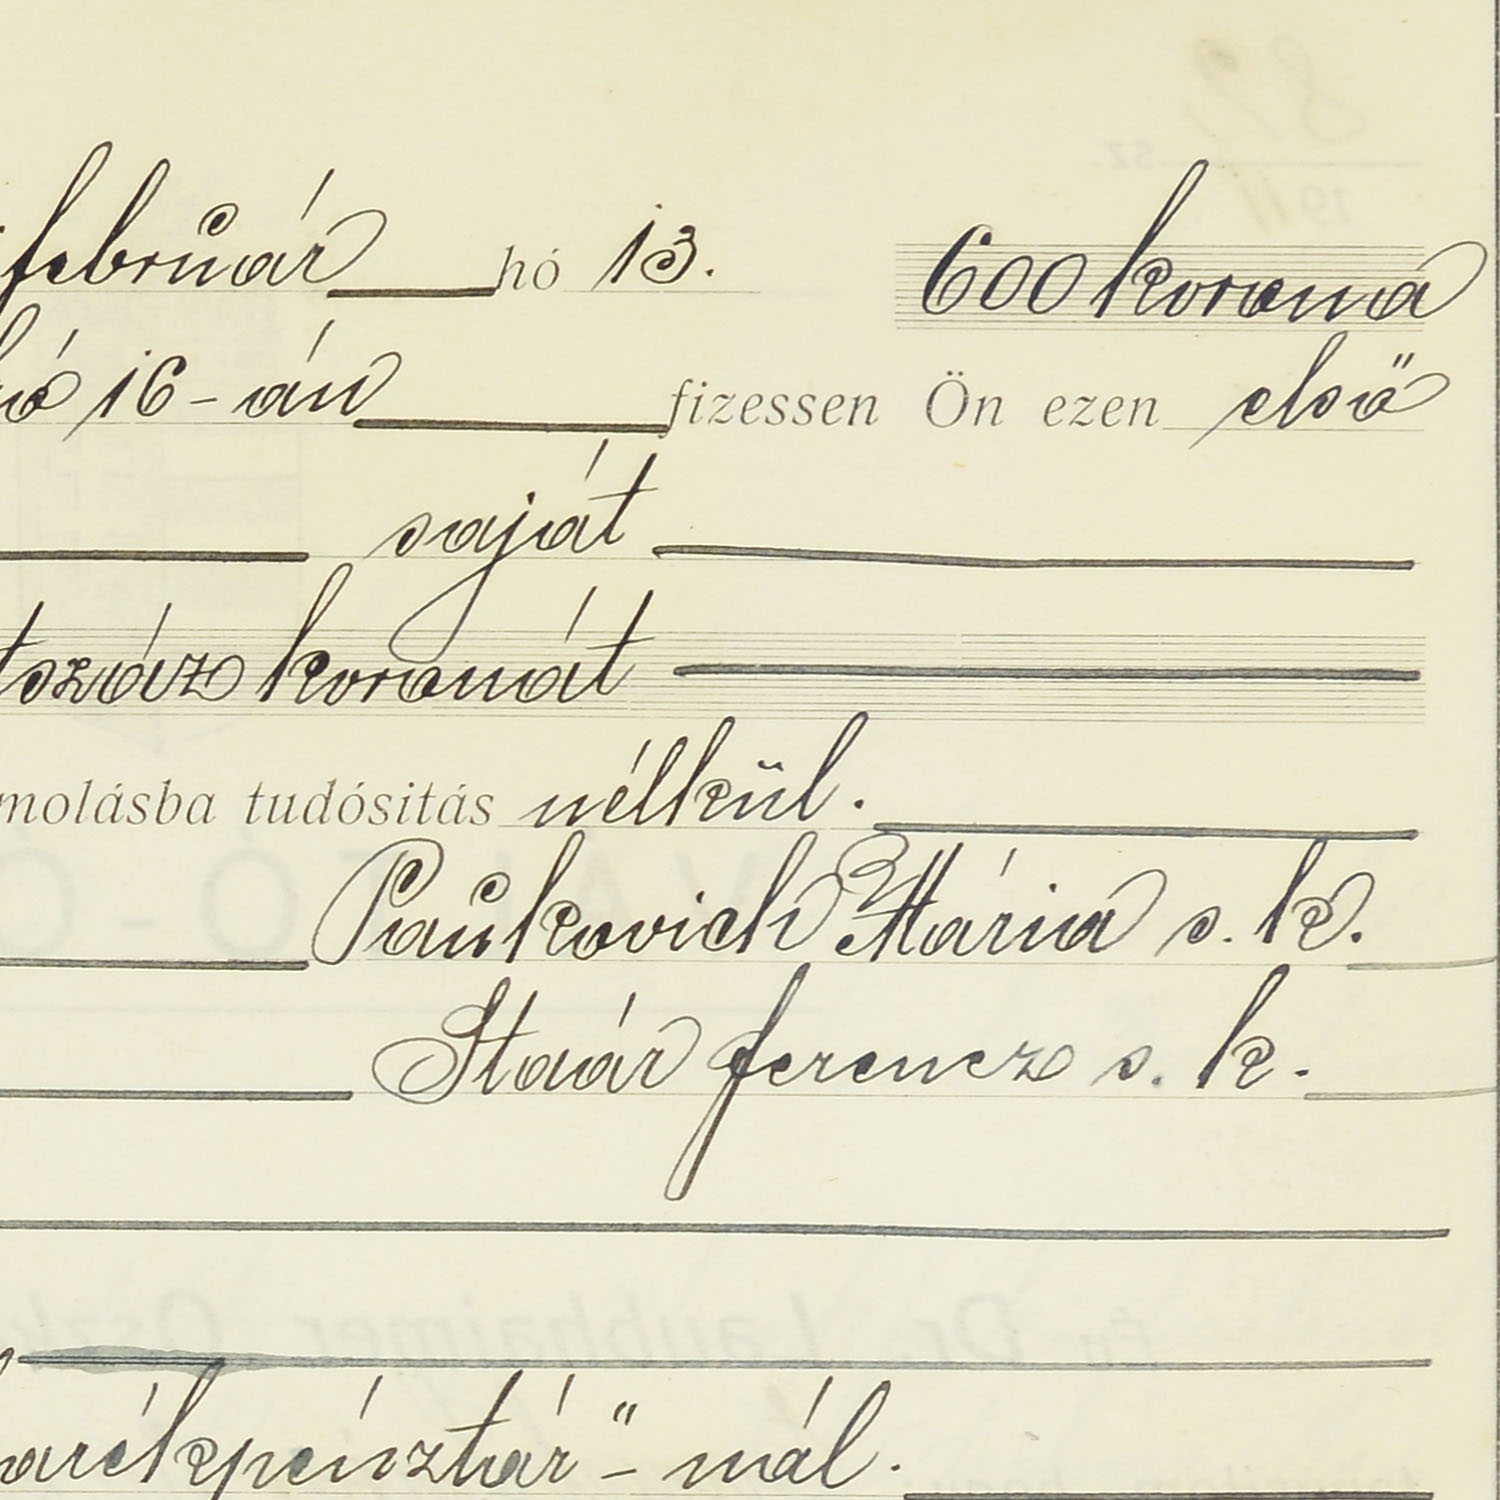 február hó 13. 600 korona
hó 16-án fizessen Ön ezen első
saját
tszáz koronát
molásba tudósitás nélkül.
Paukovich Mária s. k.
Staár Ferencz s. k.
arékpénztár"-nál.